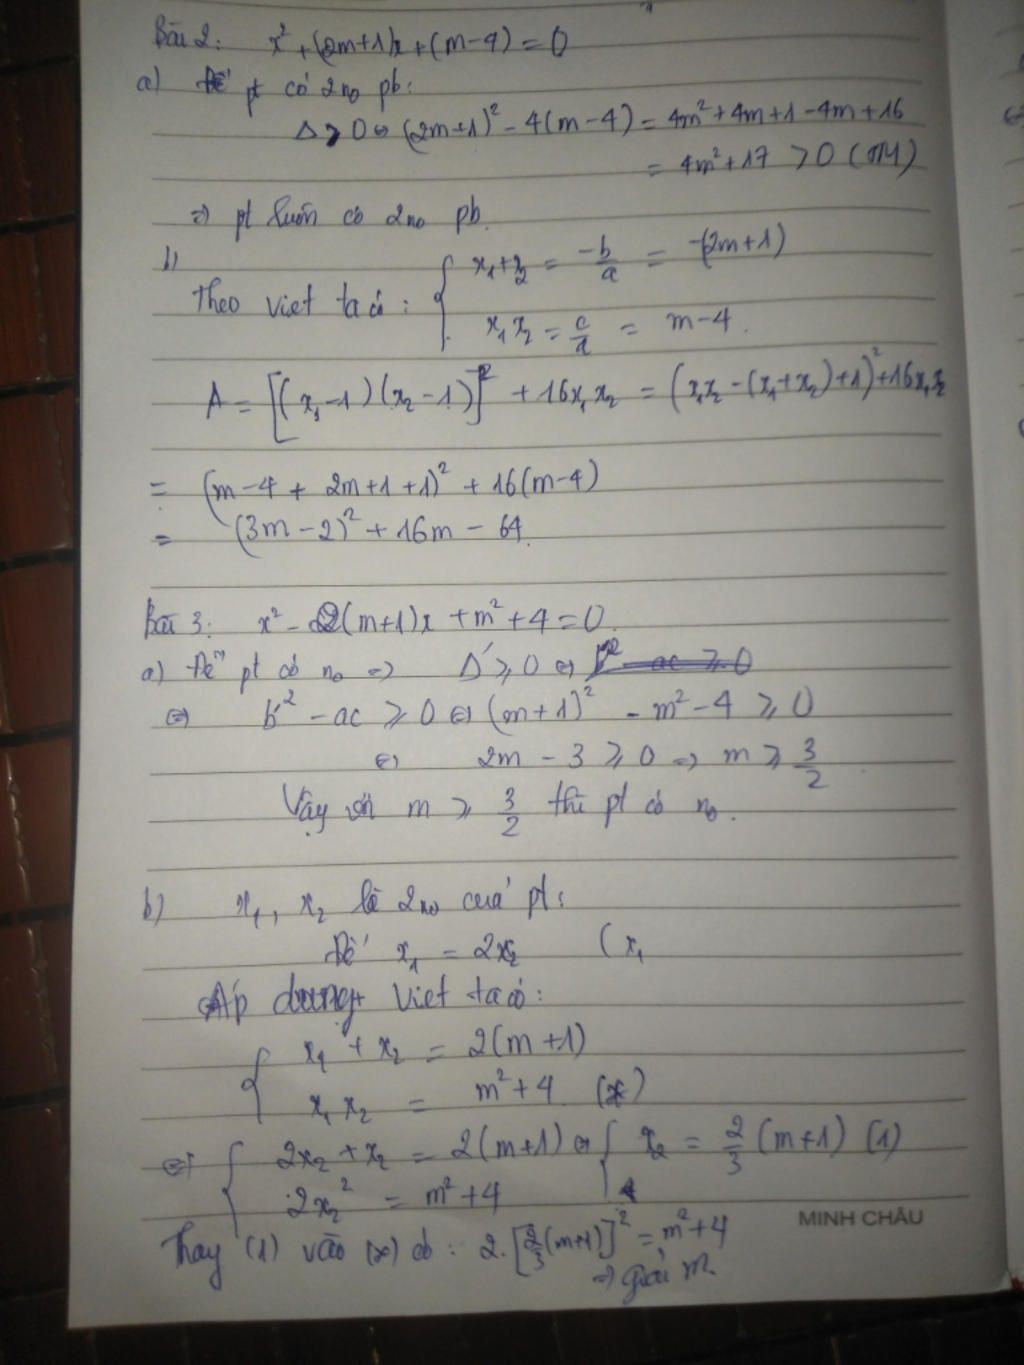 Bài 2: x² + (2m+1)x + (m-4) = 0
a) Để pt có 2 no pb:
Δ > 0 ⇔ (2m+1)² - 4(m-4) = 4m² + 4m + 1 - 4m + 16
= 4m² + 17 > 0 (TM)
⇒ pt luôn có 2 no pb.
b)
Theo viet ta có: { x₁ + x₂ = -b/a = -(2m+1)
x₁x₂ = c/a = m-4.
A = [(x₁-1)(x₂-1)]² + 16x₁x₂ = (x₁x₂ - (x₁+x₂) + 1)² + 16x₁x₂
= (m-4 + 2m+1+1)² + 16(m-4)
= (3m-2)² + 16m - 64.
Bài 3: x² - 2(m+1)x + m² + 4 = 0.
a) Để pt có no ⇒ Δ' ≥ 0 ⇔
⇔ b'² - ac ≥ 0 ⇔ (m+1)² - m² - 4 ≥ 0
⇔ 2m - 3 ≥ 0 ⇒ m ≥ 3/2
Vậy với m ≥ 3/2 thì pt có no.
b) x₁, x₂ là 2 no của pt:
Để x₁ = 2x₂ (x₁
Áp dụng Viet ta có:
{ x₁ + x₂ = 2(m+1)
x₁x₂ = m² + 4 (*)
⇔ { 2x₂ + x₂ = 2(m+1) ⇔ { x₂ = 2/3 (m+1) (1)
2x₂² = m² + 4
MINH CHÂU
Thay (1) vào (*) có: 2.[2/3(m+1)]² = m² + 4
⇒ giải m.